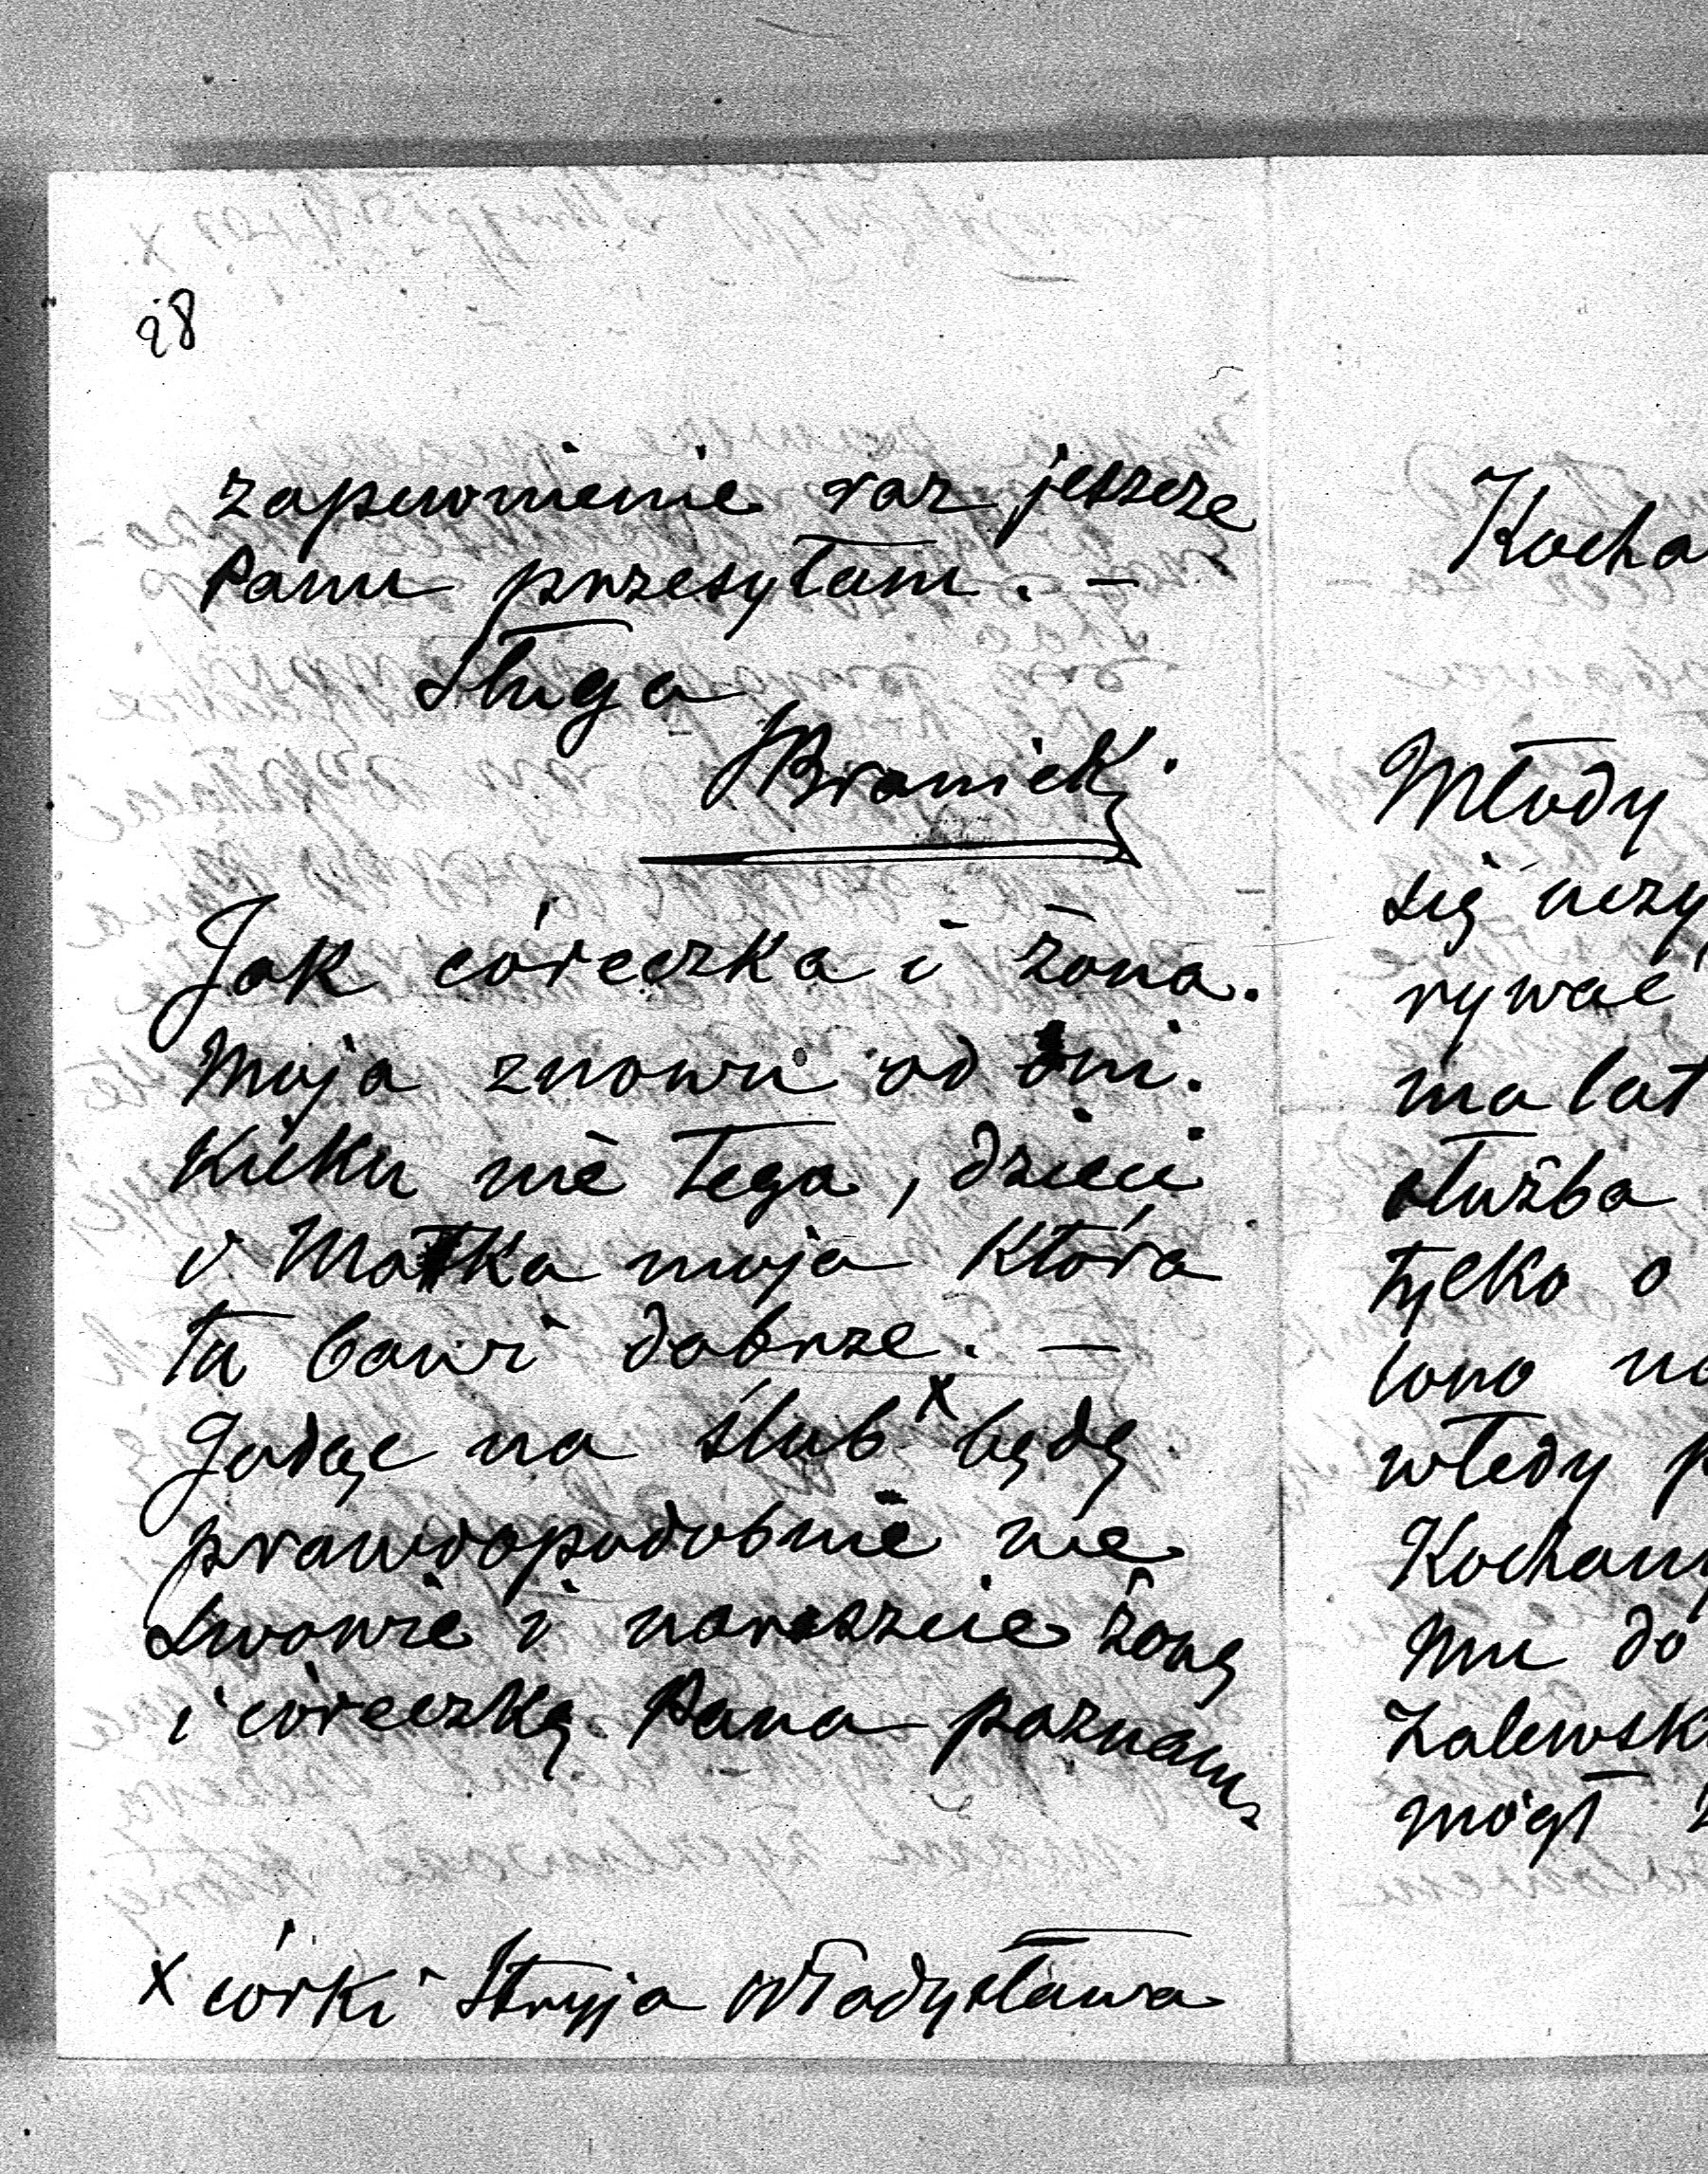 28
zapewnienie raz jeszcze
Panu przesyłam. –
Sługa
Branicki
Jak córeczka i żona.
Moja znowu od dni.
Kilku nie tęga, dzieci
i Matka moja która
tu bawi dobrze. –
Jadąc na ślub x będę
prawdopodobnie we
Lwowie i nareszcie żonę
i córeczkę Pana poznam
x córki Stryja Władysława
Kocha
Młody
się uczy
rywać
ma lat
służba
tylko o
łono na
wtedy p
Kochany
mu do
Zalewsk
mógł